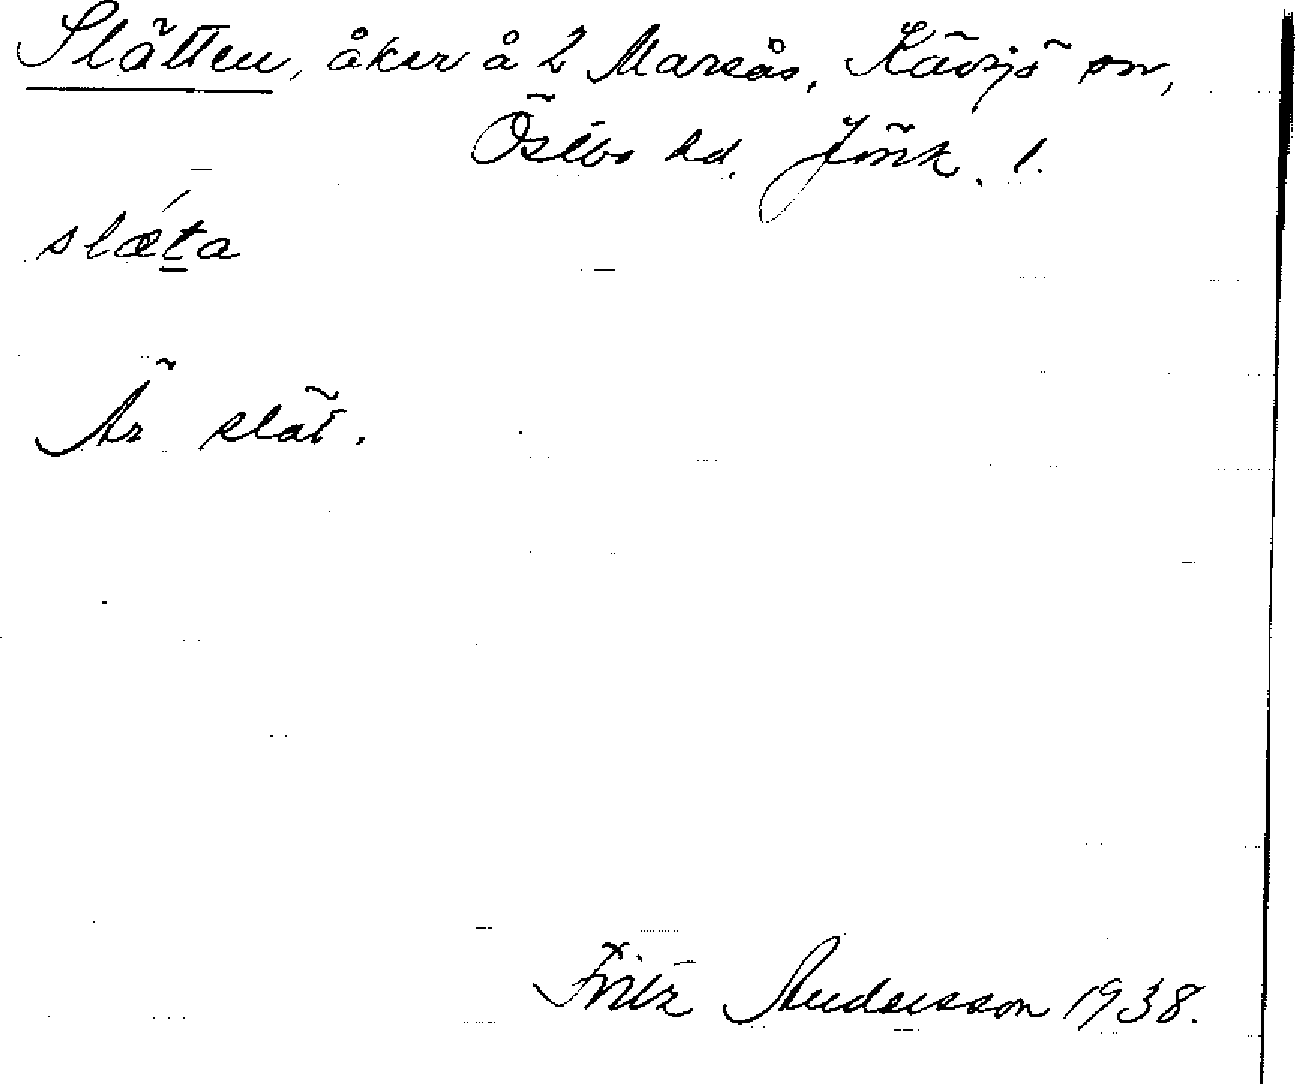 Slätten, åker å 2 Mareås, Kävsjö sn,
Östbo hd. Jönk. l.
slæ´ta
Är slät.
Fritz Andersson 1938.